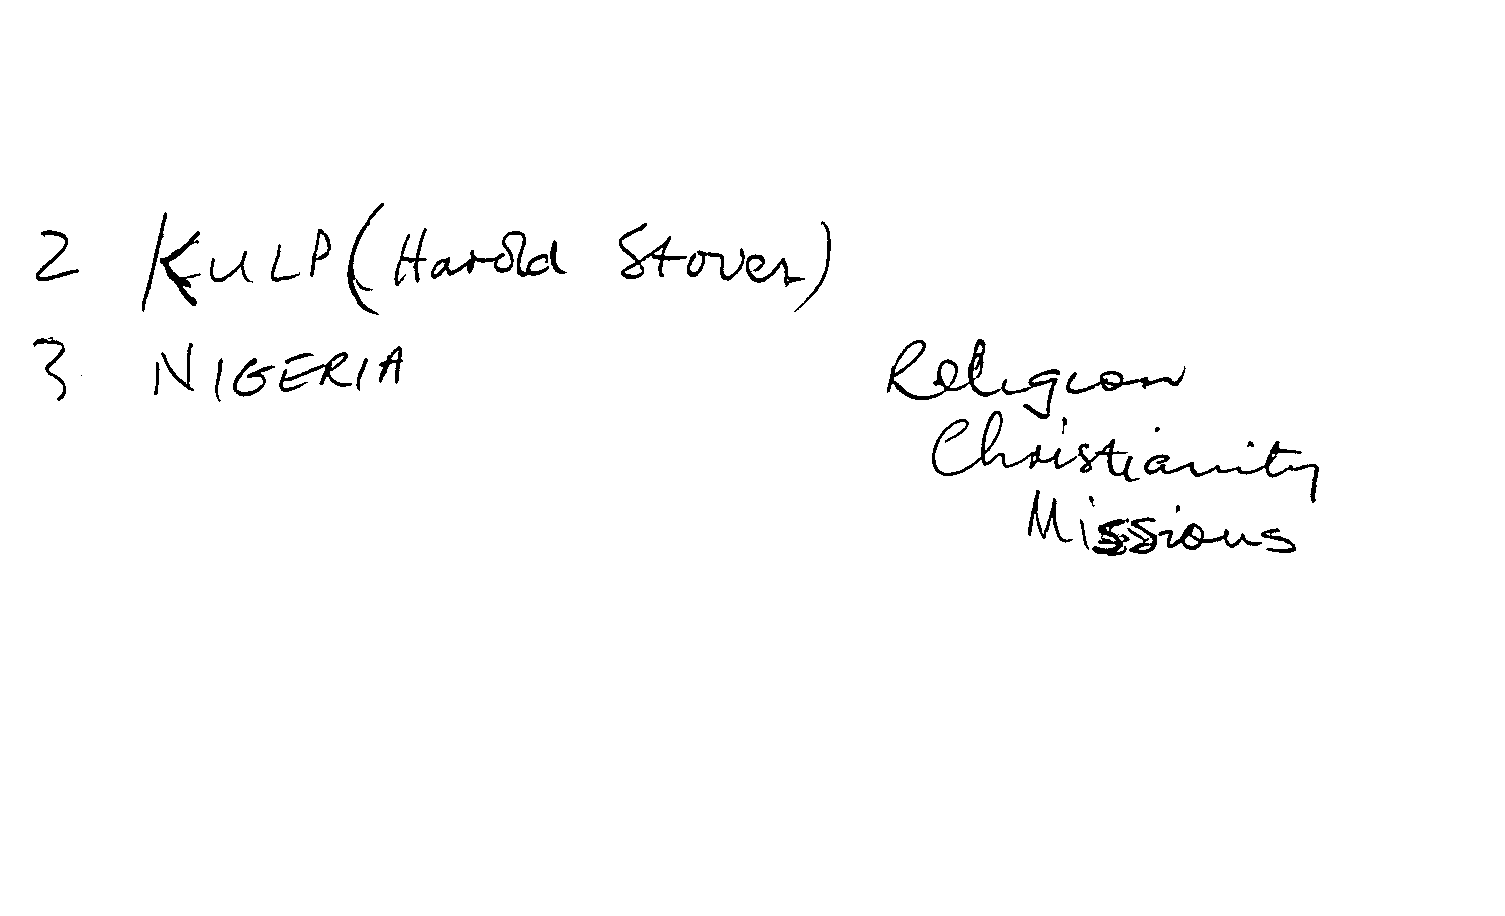 2 KULP (Harold Stover)
3 NIGERIA Religion
Christianity
Missions